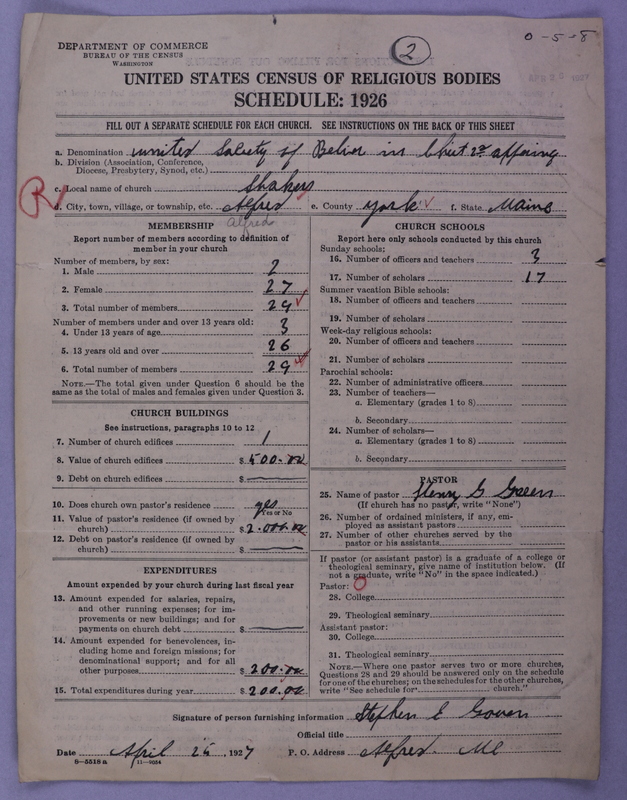 0-5-8
DEPARTMENT OF COMMERCE
BUREAU OF THE CENSUS
WASHINGTON
2
UNITED STATES CENSUS OF RELIGIOUS BODIES
SCHEDULE: 1926
FILL OUT A SEPARATE SCHEDULE FOR EACH CHURCH. SEE INSTRUCTIONS ON THE BACK OF THIS SHEET
a. Denomination united Society of in 2d
b. Division (Association, Conference,
Diocese, Presbytery, Synod, etc.)
c. Local name of church Shakers
d. City, town, village, or township, etc. Alfred e. County York f. State Maine
Alfred
MEMBERSHIP
Report number of members according to definition of
member in your church
Number of members, by sex:
1. Male 2
2. Female 27
3. Total number of members 29
Number of members under and over 13 years old:
4. Under 13 years of age 3
5. 13 years old and over 26
6. Total number of members 29
NOTE.—The total given under Question 6 should be
same as the total of males and females given under Question 3.
CHURCH BUILDINGS
See instructions, paragraphs 10 to 12
7. Number of church edifices 1
8. Value of church edifices $ 500.00
9. Debt on church edifices $
10. Does church own pastor's residence yes
Yes or No
11. Value of pastor's residence (if owned by
church) $ 2.000.00
12. Debt on pastor's residence (if owned by
church) $
EXPENDITURES
Amount expended by your church during last fiscal year
13. Amount expended for salaries, repairs,
and other running expenses; for im-
provements or new buildings; and for
payments on church debt $
14. Amount expended for benevolences, in-
cluding home and foreign missions; for
denominational support; and for all
other purposes $ 200.00
15. Total expenditures during year $ 200.00
CHURCH SCHOOLS
Report here only schools conducted by this church
Sunday schools:
16. Number of officers and teachers 3
17. Number of scholars 17
Summer vacation Bible schools:
18. Number of officers and teachers
19. Number of scholars
Week-day religious schools:
20. Number of officers and teachers
21. Number of scholars
Parochial schools:
22. Number of administrative officers
23. Number of teachers—
a. Elementary (grades 1 to 8)
b. Secondary
24. Number of scholars—
a. Elementary (grades 1 to 8)
b. Secondary
PASTOR
25. Name of pastor Henry G Green
(If church has no pastor, write "None")
26. Number of ordained ministers, if any, em-
ployed as assistant pastors
27. Number of other churches served by the
pastor or his assistants
If pastor (or assistant pastor) is a graduate of a college or
theological seminary, give name of institution below. (If
not a graduate, write "No" in the space indicated.)
Pastor: 0
28. College
29. Theological seminary
Assistant pastor:
30. College
31. Theological seminary
NOTE.—Where one pastor serves two or more churches,
Questions 28 and 29 should be answered only on the schedule
for one of the churches; on the schedules for the other churches,
write "See schedule for church."
Signature of person furnishing information Stephen E Gowen
Official title
Date April 25, 1927 P. O. Address Alfred. Me
8—5518 a 11—9034